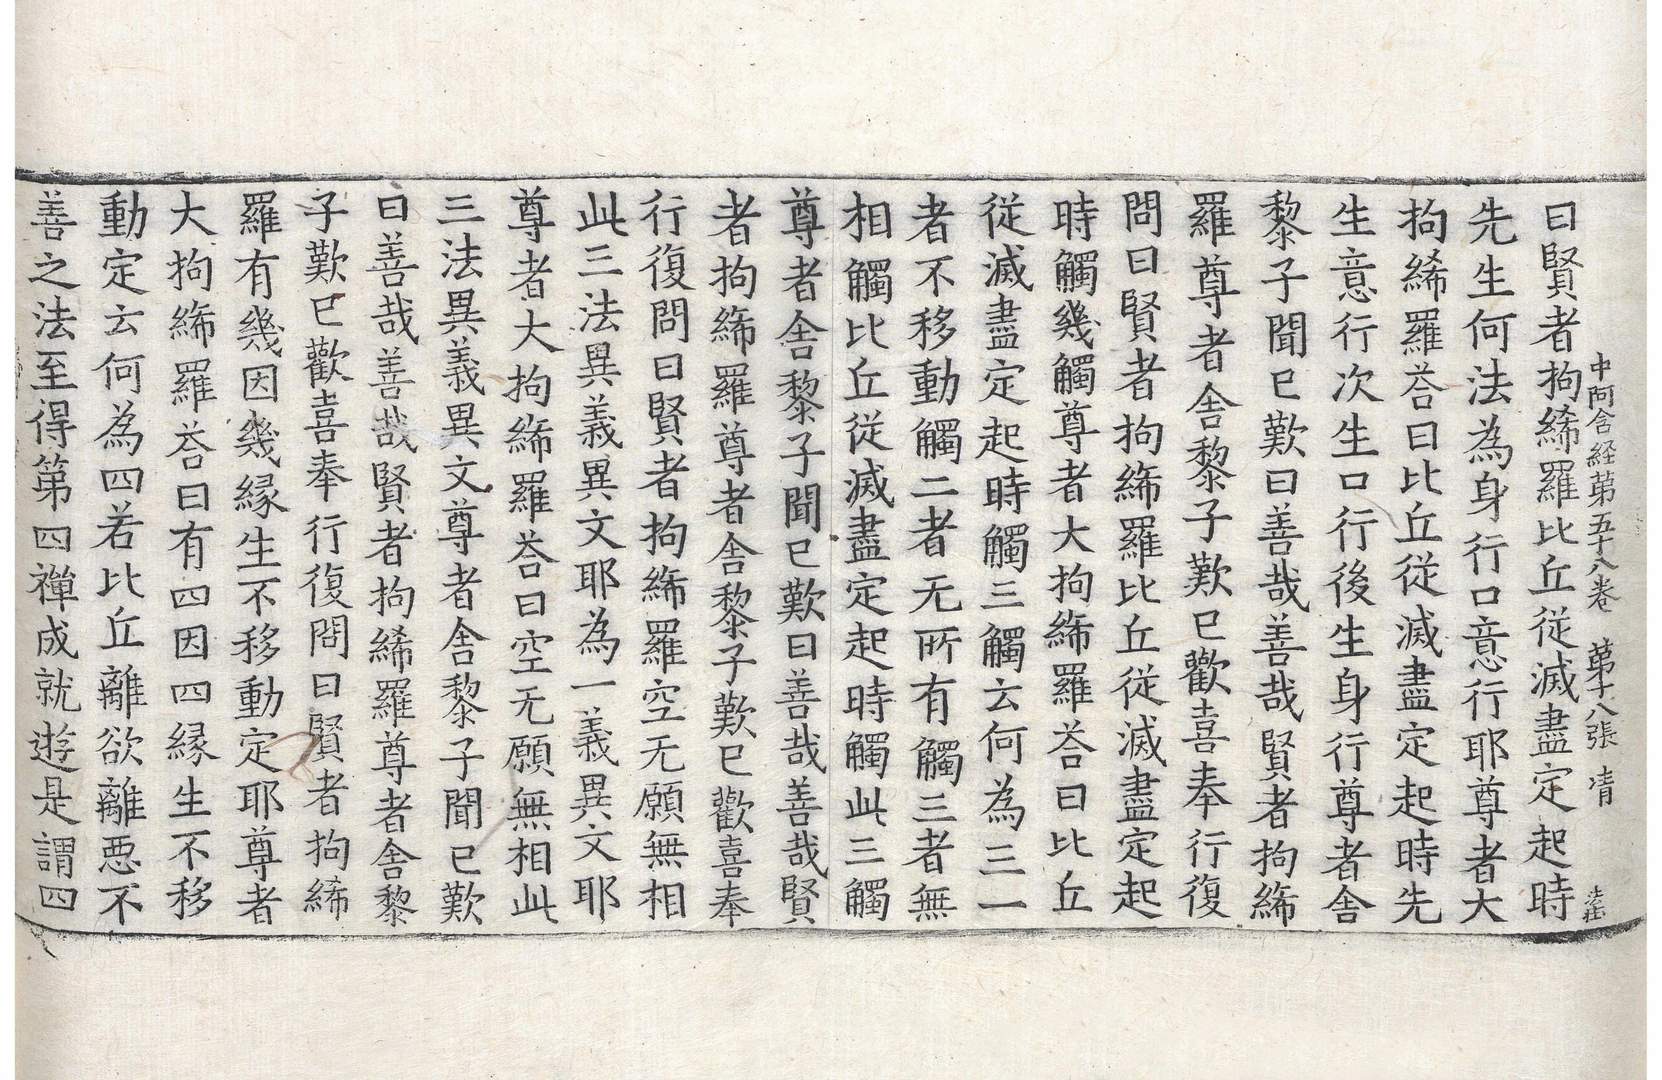 中阿含経第五十八卷 第十八張 清
曰賢者拘絺羅比丘従滅盡定起時
先生何法為身行口意行耶尊者大
拘絺羅荅曰比丘従滅盡定起時先
生意行次生口行後生身行尊者舍
黎子聞已歎曰善哉善哉賢者拘絺
羅尊者舍黎子歎已歡喜奉行復
問曰賢者拘絺羅比丘従滅盡定起
時觸幾觸尊者大拘絺羅荅曰比丘
従滅盡定起時觸三觸云何為三一
者不移動觸二者无所有觸三者無
相觸比丘従滅盡定起時觸此三觸
尊者舍黎子聞已歎曰善哉善哉賢
者拘絺羅尊者舍黎子歎已歡喜奉
行復問曰賢者拘絺羅空无願無相
此三法異義異文耶為一義異文耶
尊者大拘絺羅荅曰空无願無相此
三法異義異文尊者舍黎子聞已歎
曰善哉善哉賢者拘絺羅尊者舍黎
子歎已歡喜奉行復問曰賢者拘絺
羅有幾因幾縁生不移動定耶尊者
大拘絺羅荅曰有四因四縁生不移
動定云何為四若比丘離欲離惡不
善之法至得第四禪成就遊是謂四